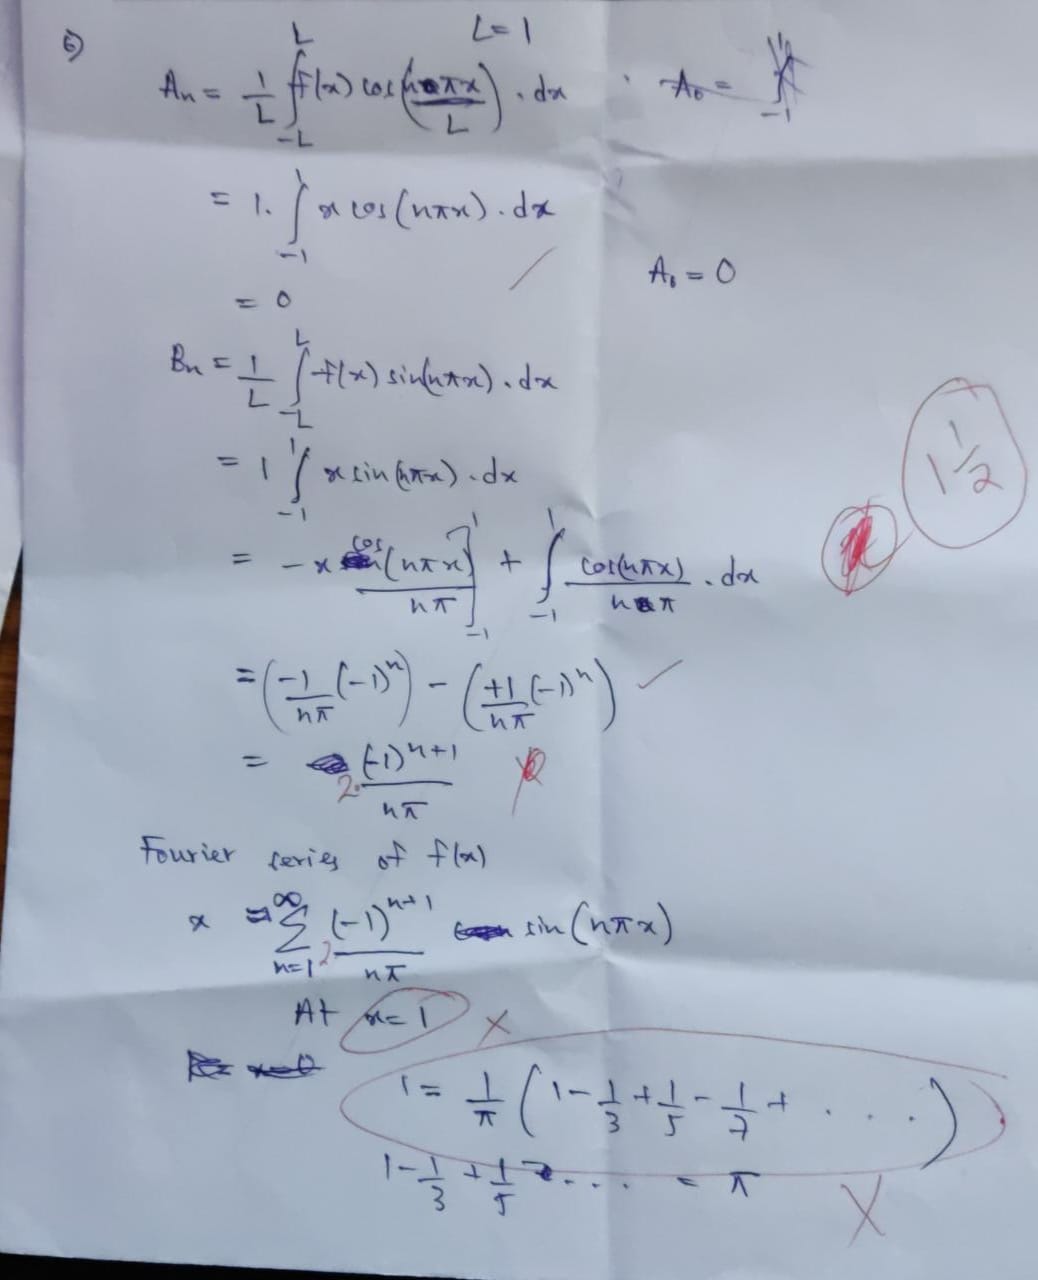 6)
L = 1
An = 1/L ∫_{-L}^{L} f(x) cos(nπx/L) . dx
A₀ = ∫_{-1}^{1}
= 1. ∫_{-1}^{1} x cos(nπx) . dx
A₀ = 0
= 0
Bn = 1/L ∫_{-L}^{L} f(x) sin(nπx) . dx
= 1 ∫_{-1}^{1} x sin(nπx) . dx
1 1/2
= -x cos(nπx)/nπ ]_{-1}^{1} + ∫_{-1}^{1} cos(nπx)/nπ . dx
= (-1/nπ (-1)^n) - (+1/nπ (-1)^n) ✓
= 2. (-1)^{n+1}/nπ
Fourier series of f(x)
x = ∑_{n=1}^{∞} 2 (-1)^{n+1}/nπ sin(nπx)
At x = 1 X
1 = 1/π (1 - 1/3 + 1/5 - 1/7 + . . . .)
1 - 1/3 + 1/5 . . . . = π X